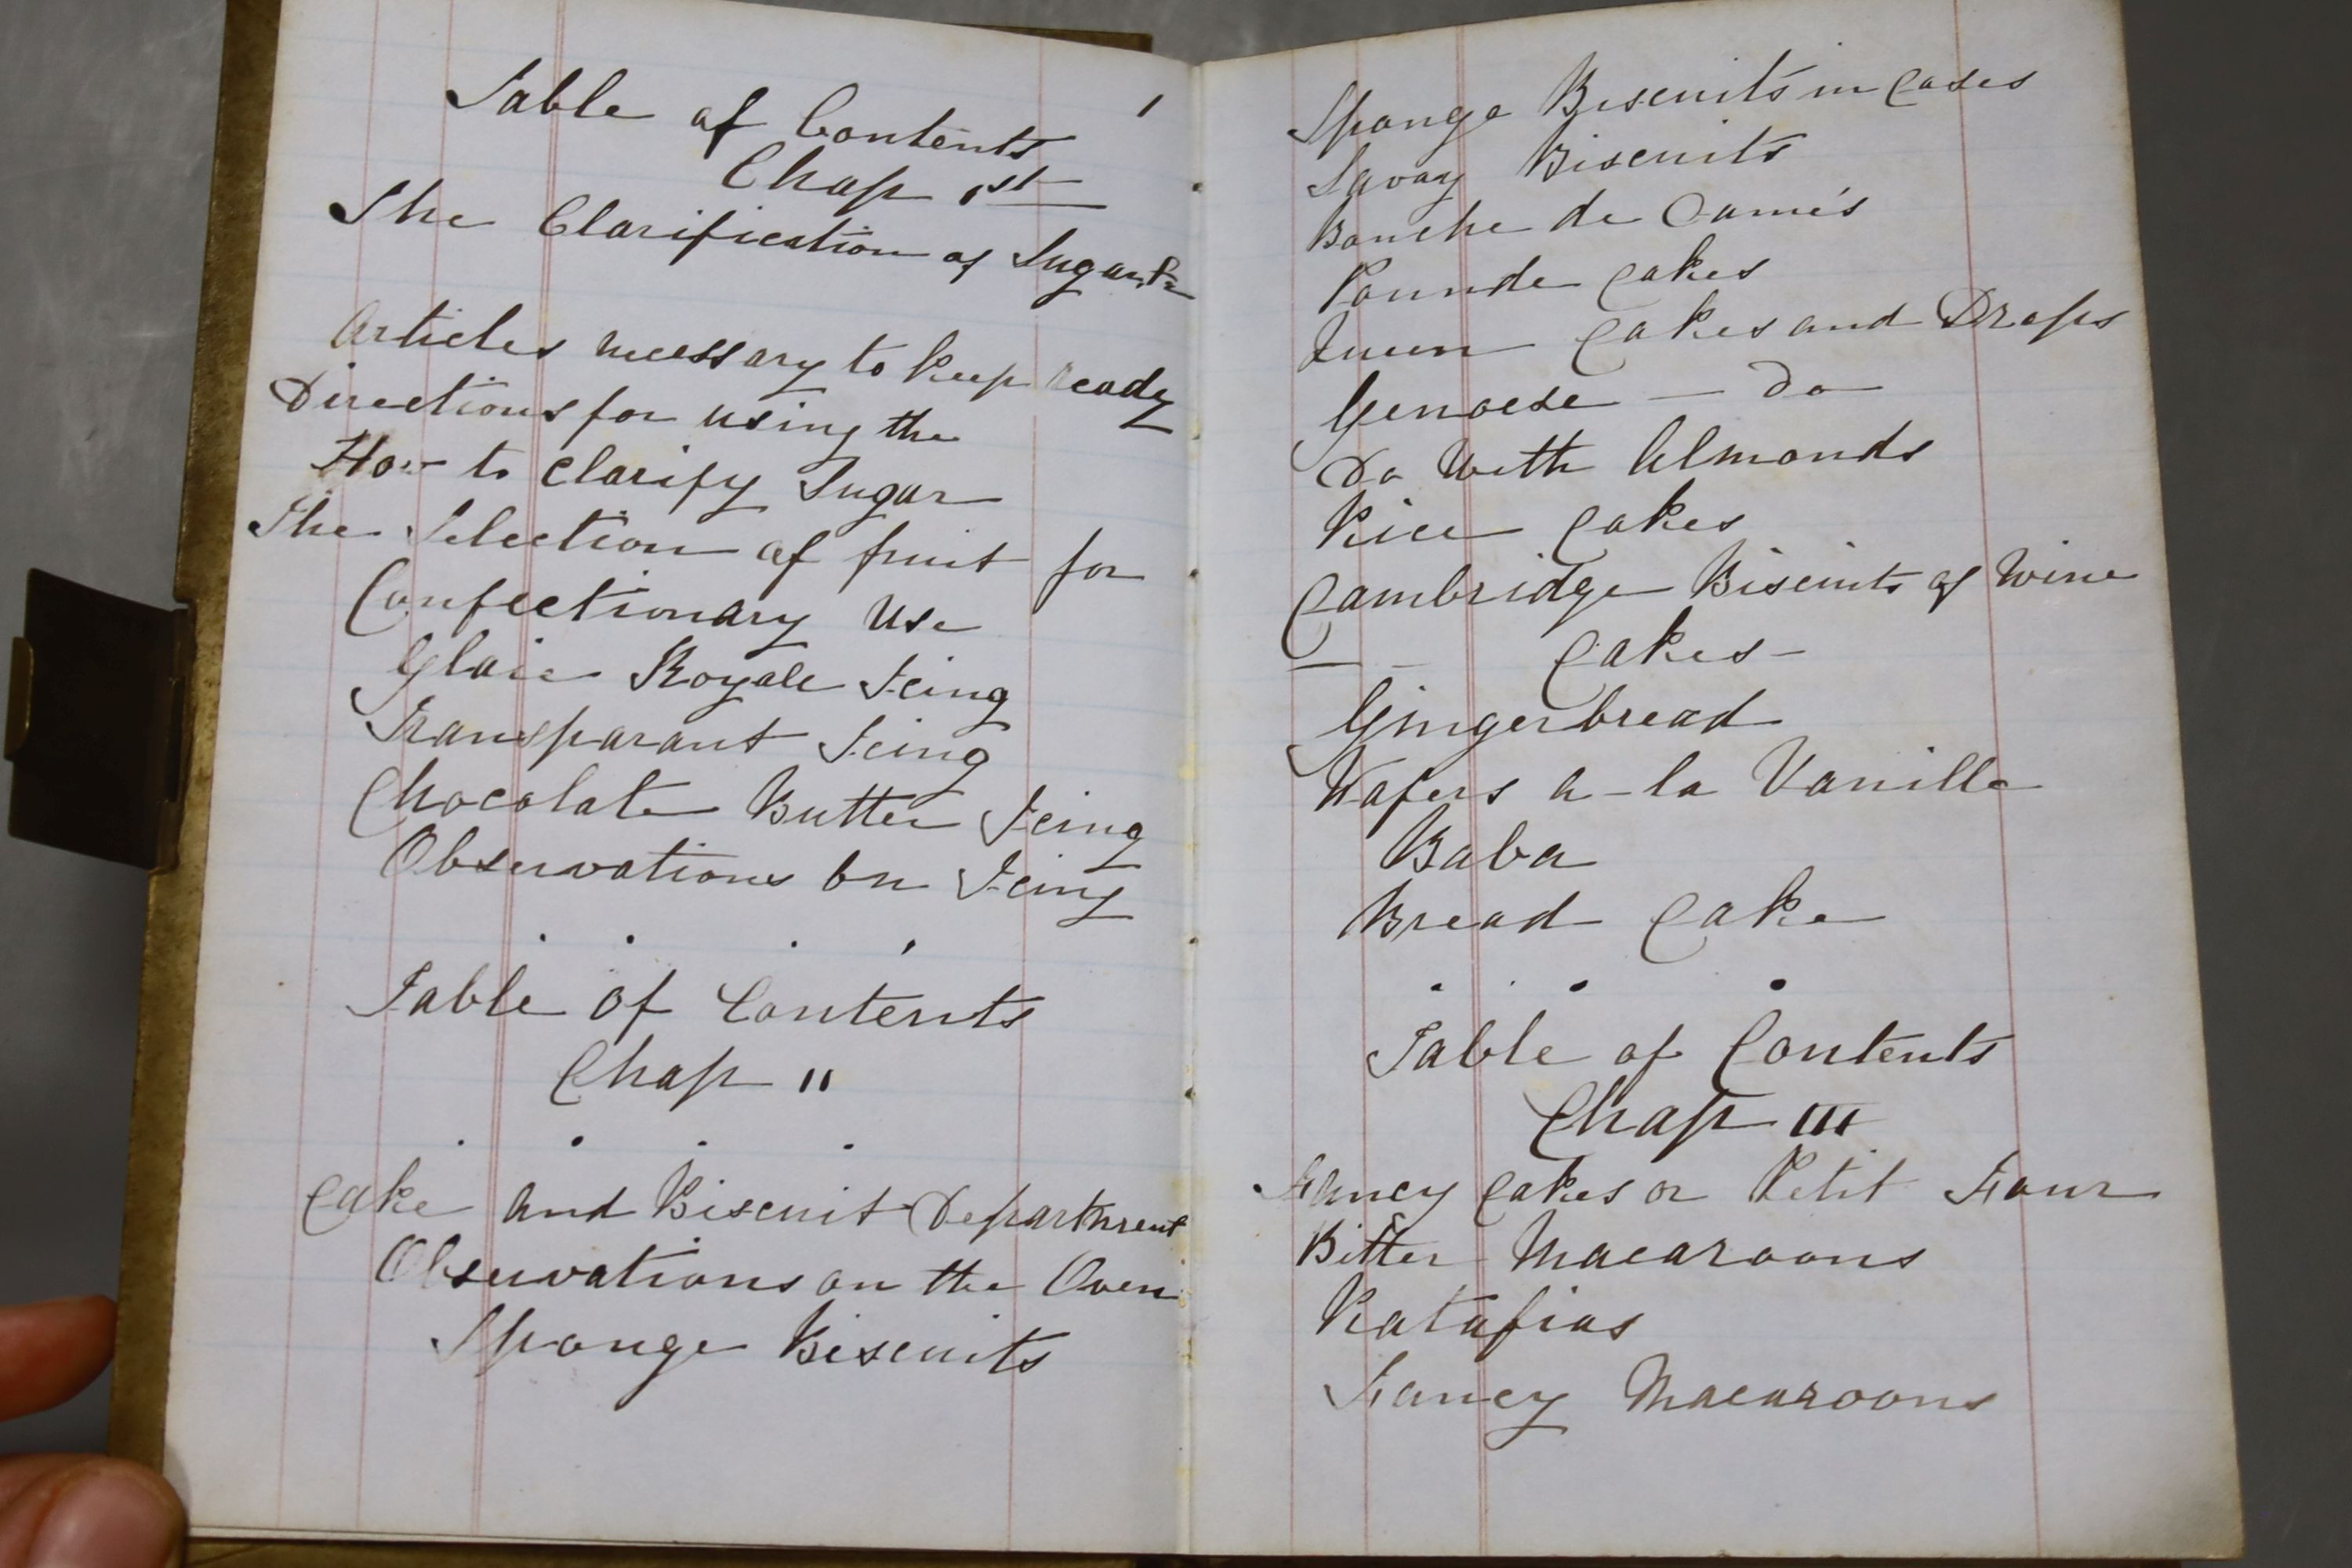 1
Table of Contents
Chap 1st
The Clarification of Sugar &c
Articles necessary to keep ready
Directions for using the
How to Clarify Sugar
The Selection of fruit for
Confectionary Use
Glaie Royale Icing
Transparant Icing
Chocolate Butter Icing
Observations on Icing
Table of Contents
Chap II
Cake and Biscuit Department
Observations on the Oven
Sponge Biscuits
Sponge Biscuits in Cases
Savoy Biscuits
Bouche de Dames
Pounde Cakes
Queen Cakes and Drops
Genoese — Do
Do With Almonds
Rice Cakes
Cambridge Biscuits of Wine
— - Cakes -
Gingerbread
Wafers a-la Vanille
Baba
Bread Cake
Table of Contents
Chap III
Fancy Cakes or Petit Four
Bitter Macaroons
Ratafias
Fancy Macaroons